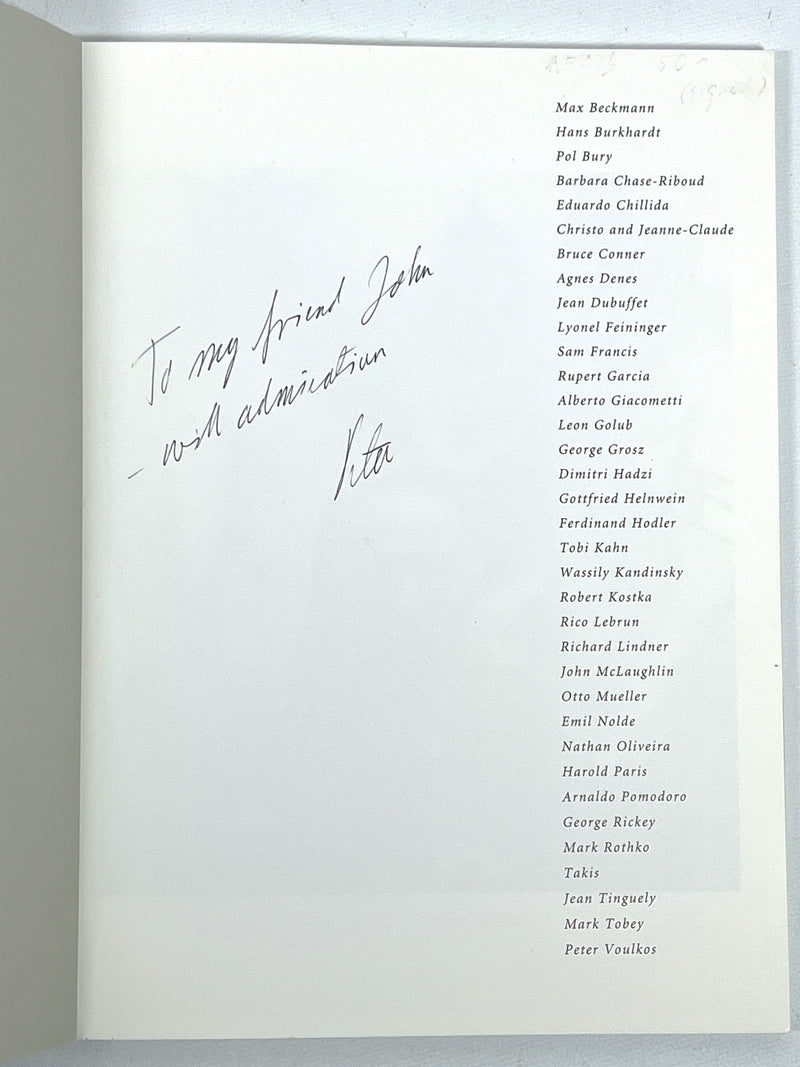 50-
(signed)
Max Beckmann
Hans Burkhardt
Pol Bury
Barbara Chase-Riboud
Eduardo Chillida
Christo and Jeanne-Claude
Bruce Conner
Agnes Denes
Jean Dubuffet
Lyonel Feininger
Sam Francis
Rupert Garcia
Alberto Giacometti
Leon Golub
George Grosz
Dimitri Hadzi
Gottfried Helnwein
Ferdinand Hodler
Tobi Kahn
Wassily Kandinsky
Robert Kostka
Rico Lebrun
Richard Lindner
John McLaughlin
Otto Mueller
Emil Nolde
Nathan Oliveira
Harold Paris
Arnaldo Pomodoro
George Rickey
Mark Rothko
Takis
Jean Tinguely
Mark Tobey
Peter Voulkos
To my friend John
- with admiration
Peter